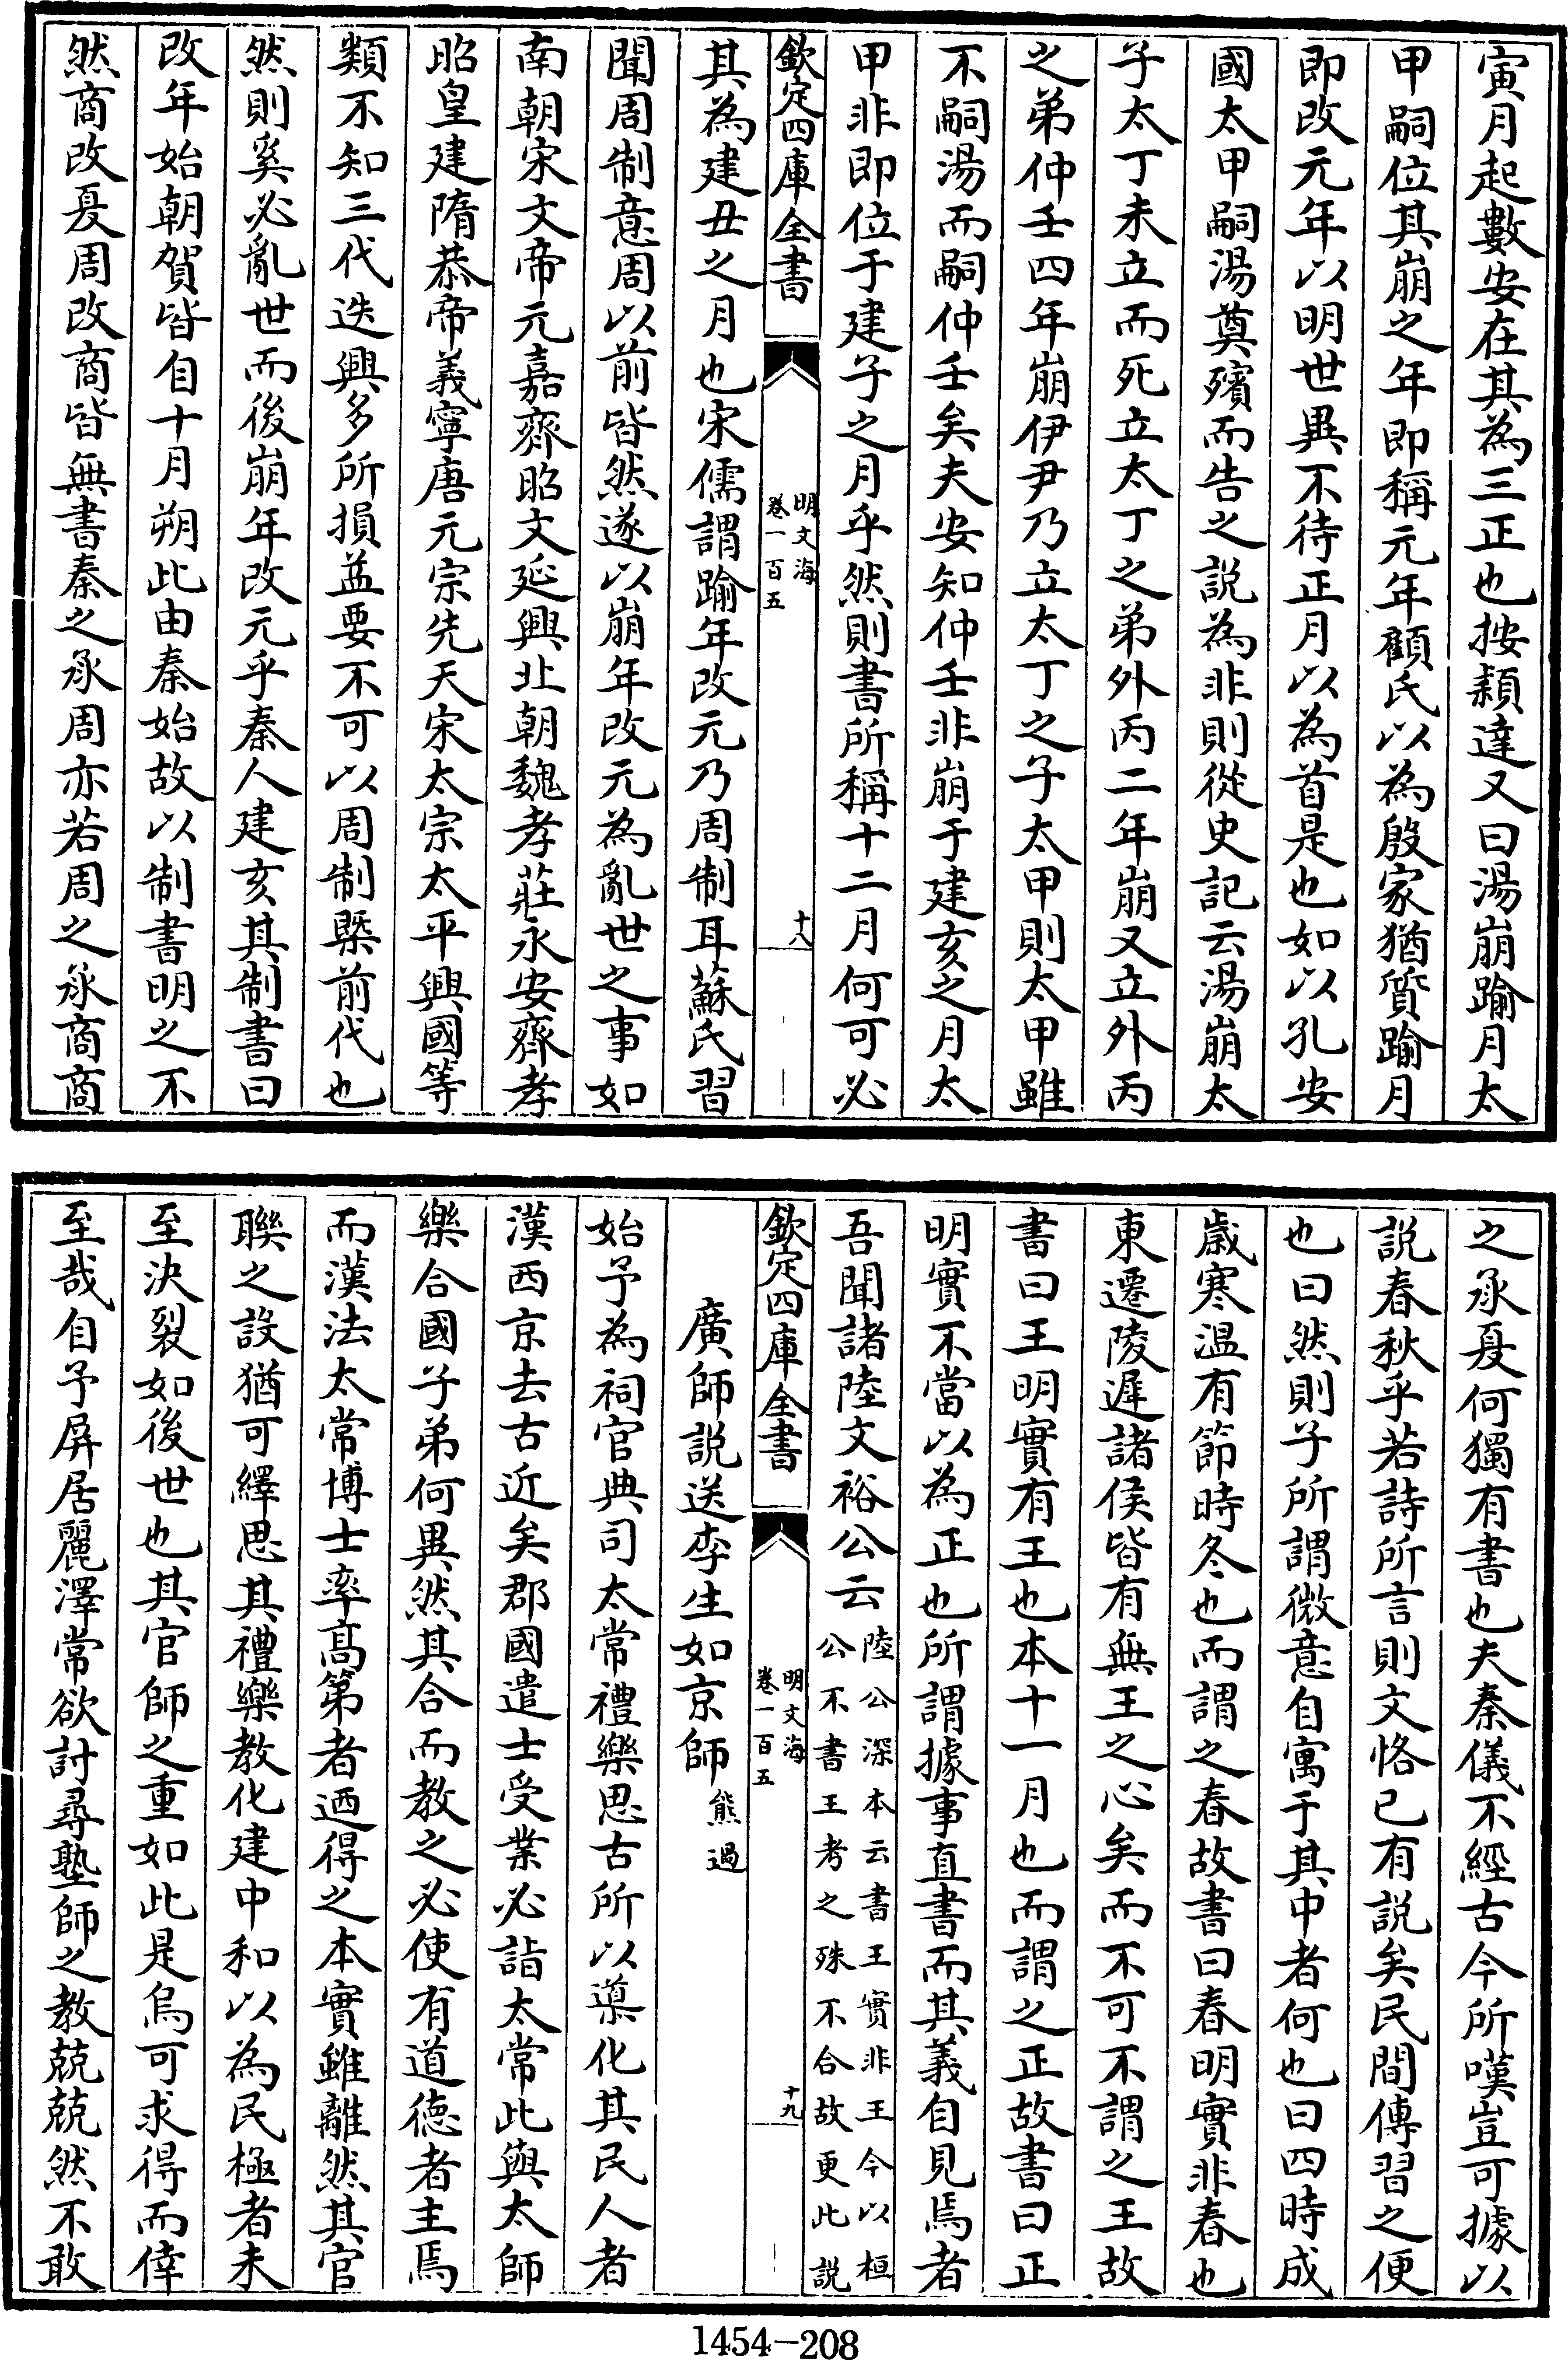 寅月起數安在其為三正也按穎達又曰湯崩踰月太
甲嗣位其崩之年即稱元年顧氏以為殷家猶質踰月
即改元年以明世異不待正月以為首是也如以孔安
國太甲嗣湯奠殯而告之説為非則從史記云湯崩太
子太丁未立而死立太丁之弟外丙二年崩又立外丙
之弟仲壬四年崩伊尹乃立太丁之子太甲則太甲雖
不嗣湯而嗣仲壬矣夫安知仲壬非崩于建亥之月太
甲非即位于建子之月乎然則書所稱十二月何可必
欽定四庫全書
明文海
卷一百五
十八
其為建丑之月也宋儒謂踰年改元乃周制耳蘇氏習
聞周制意周以前皆然遂以崩年改元為亂世之事如
南朝宋文帝元嘉齊昭文延興北朝魏孝莊永安齊孝
昭皇建隋恭帝義寧唐元宗先天宋太宗太平興國等
類不知三代迭興多所損益要不可以周制槩前代也
然則奚必亂世而後崩年改元乎秦人建亥其制書曰
改年始朝賀皆自十月朔此由秦始故以制書明之不
然商改夏周改商皆無書秦之承周亦若周之承商商
之承夏何獨有書也夫秦儀不經古今所嘆豈可據以
説春秋乎若詩所言則文恪已有説矣民間傳習之便
也曰然則子所謂微意自寓于其中者何也曰四時成
歲寒温有節時冬也而謂之春故書曰春明實非春也
東遷陵遲諸侯皆有無王之心矣而不可不謂之王故
書曰王明實有王也本十一月也而謂之正故書曰正
明實不當以為正也所謂據事直書而其義自見焉者
吾聞諸陸文裕公云陸公深本云書王實非王今以桓
公不書王考之殊不合故更此説
欽定四庫全書
明文海
卷一百五
十九
廣師説送李生如京師 熊過
始予為祠官典司太常禮樂思古所以導化其民人者
漢西京去古近矣郡國遣士受業必詣太常此與太師
樂合國子弟何異然其合而教之必使有道德者主焉
而漢法太常博士率高第者迺得之本實雖離然其官
聯之設猶可繹思其禮樂教化建中和以為民極者未
至決裂如後世也其官師之重如此是烏可求得而倖
至哉自予屏居麗澤常欲討尋塾師之教兢兢然不敢
1454-208